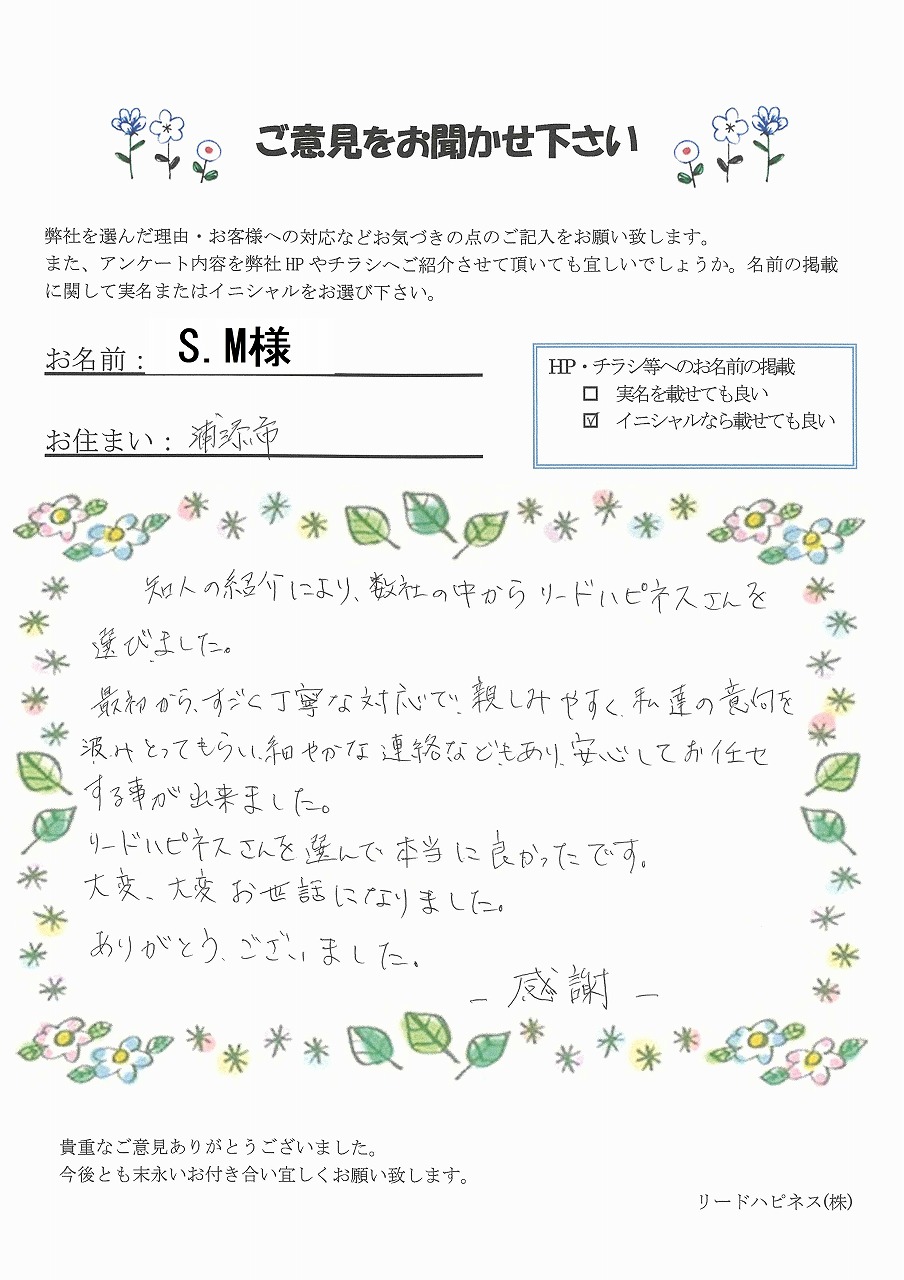 ご意見をお聞かせ下さい
弊社を選んだ理由・お客様への対応などお気づきの点のご記入をお願い致します。
また、アンケート内容を弊社HPやチラシへご紹介させて頂いても宜しいでしょうか。名前の掲載
に関して実名またはイニシャルをお選び下さい。
お名前： S.M様
お住まい： 浦添市
HP・チラシ等へのお名前の掲載
□ 実名を載せても良い
☑ イニシャルなら載せても良い
知人の紹介により、数社の中からリードハピネスさんを
選びました。
最初から、すごく丁寧な対応で、親しみやすく、私達の意向を
汲みとってもらい、細やかな連絡などもあり、安心してお任せ
する事が出来ました。
リードハピネスさんを選んで本当に良かったです。
大変、大変お世話になりました。
ありがとうございました。
― 感謝 ―
貴重なご意見ありがとうございました。
今後とも末永いお付き合い宜しくお願い致します。
リードハピネス(株)